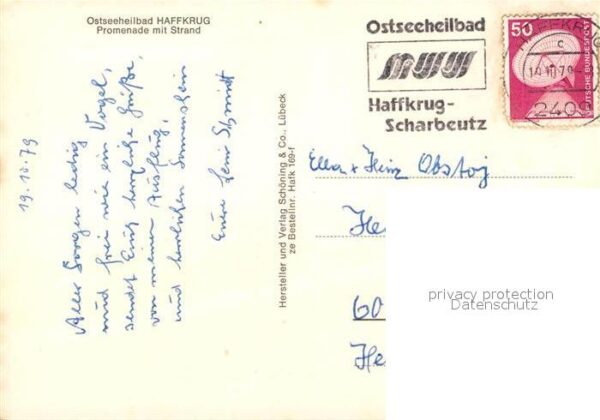 Ostseeheilbad HAFFKRUG
Promenade mit Strand
19.10.79
Aller Sorgen ledig
und frei wie ein Vogel,
sendet Euch herzliche Grüße,
von meiner Ausflug,
und herrlichen Sonnenschein
Eure
Schmidt
Hersteller und Verlag Schöning & Co., Lübeck
ze Bestellnr. Hafk 169-f
Ostseeheilbad
Haffkrug-
Scharbeutz
HAFFKRUG
c
2409
50
DEUTSCHE BUNDESPOST
Ella + Heinz Obstoj
He
60
He
privacy protection
Datenschutz